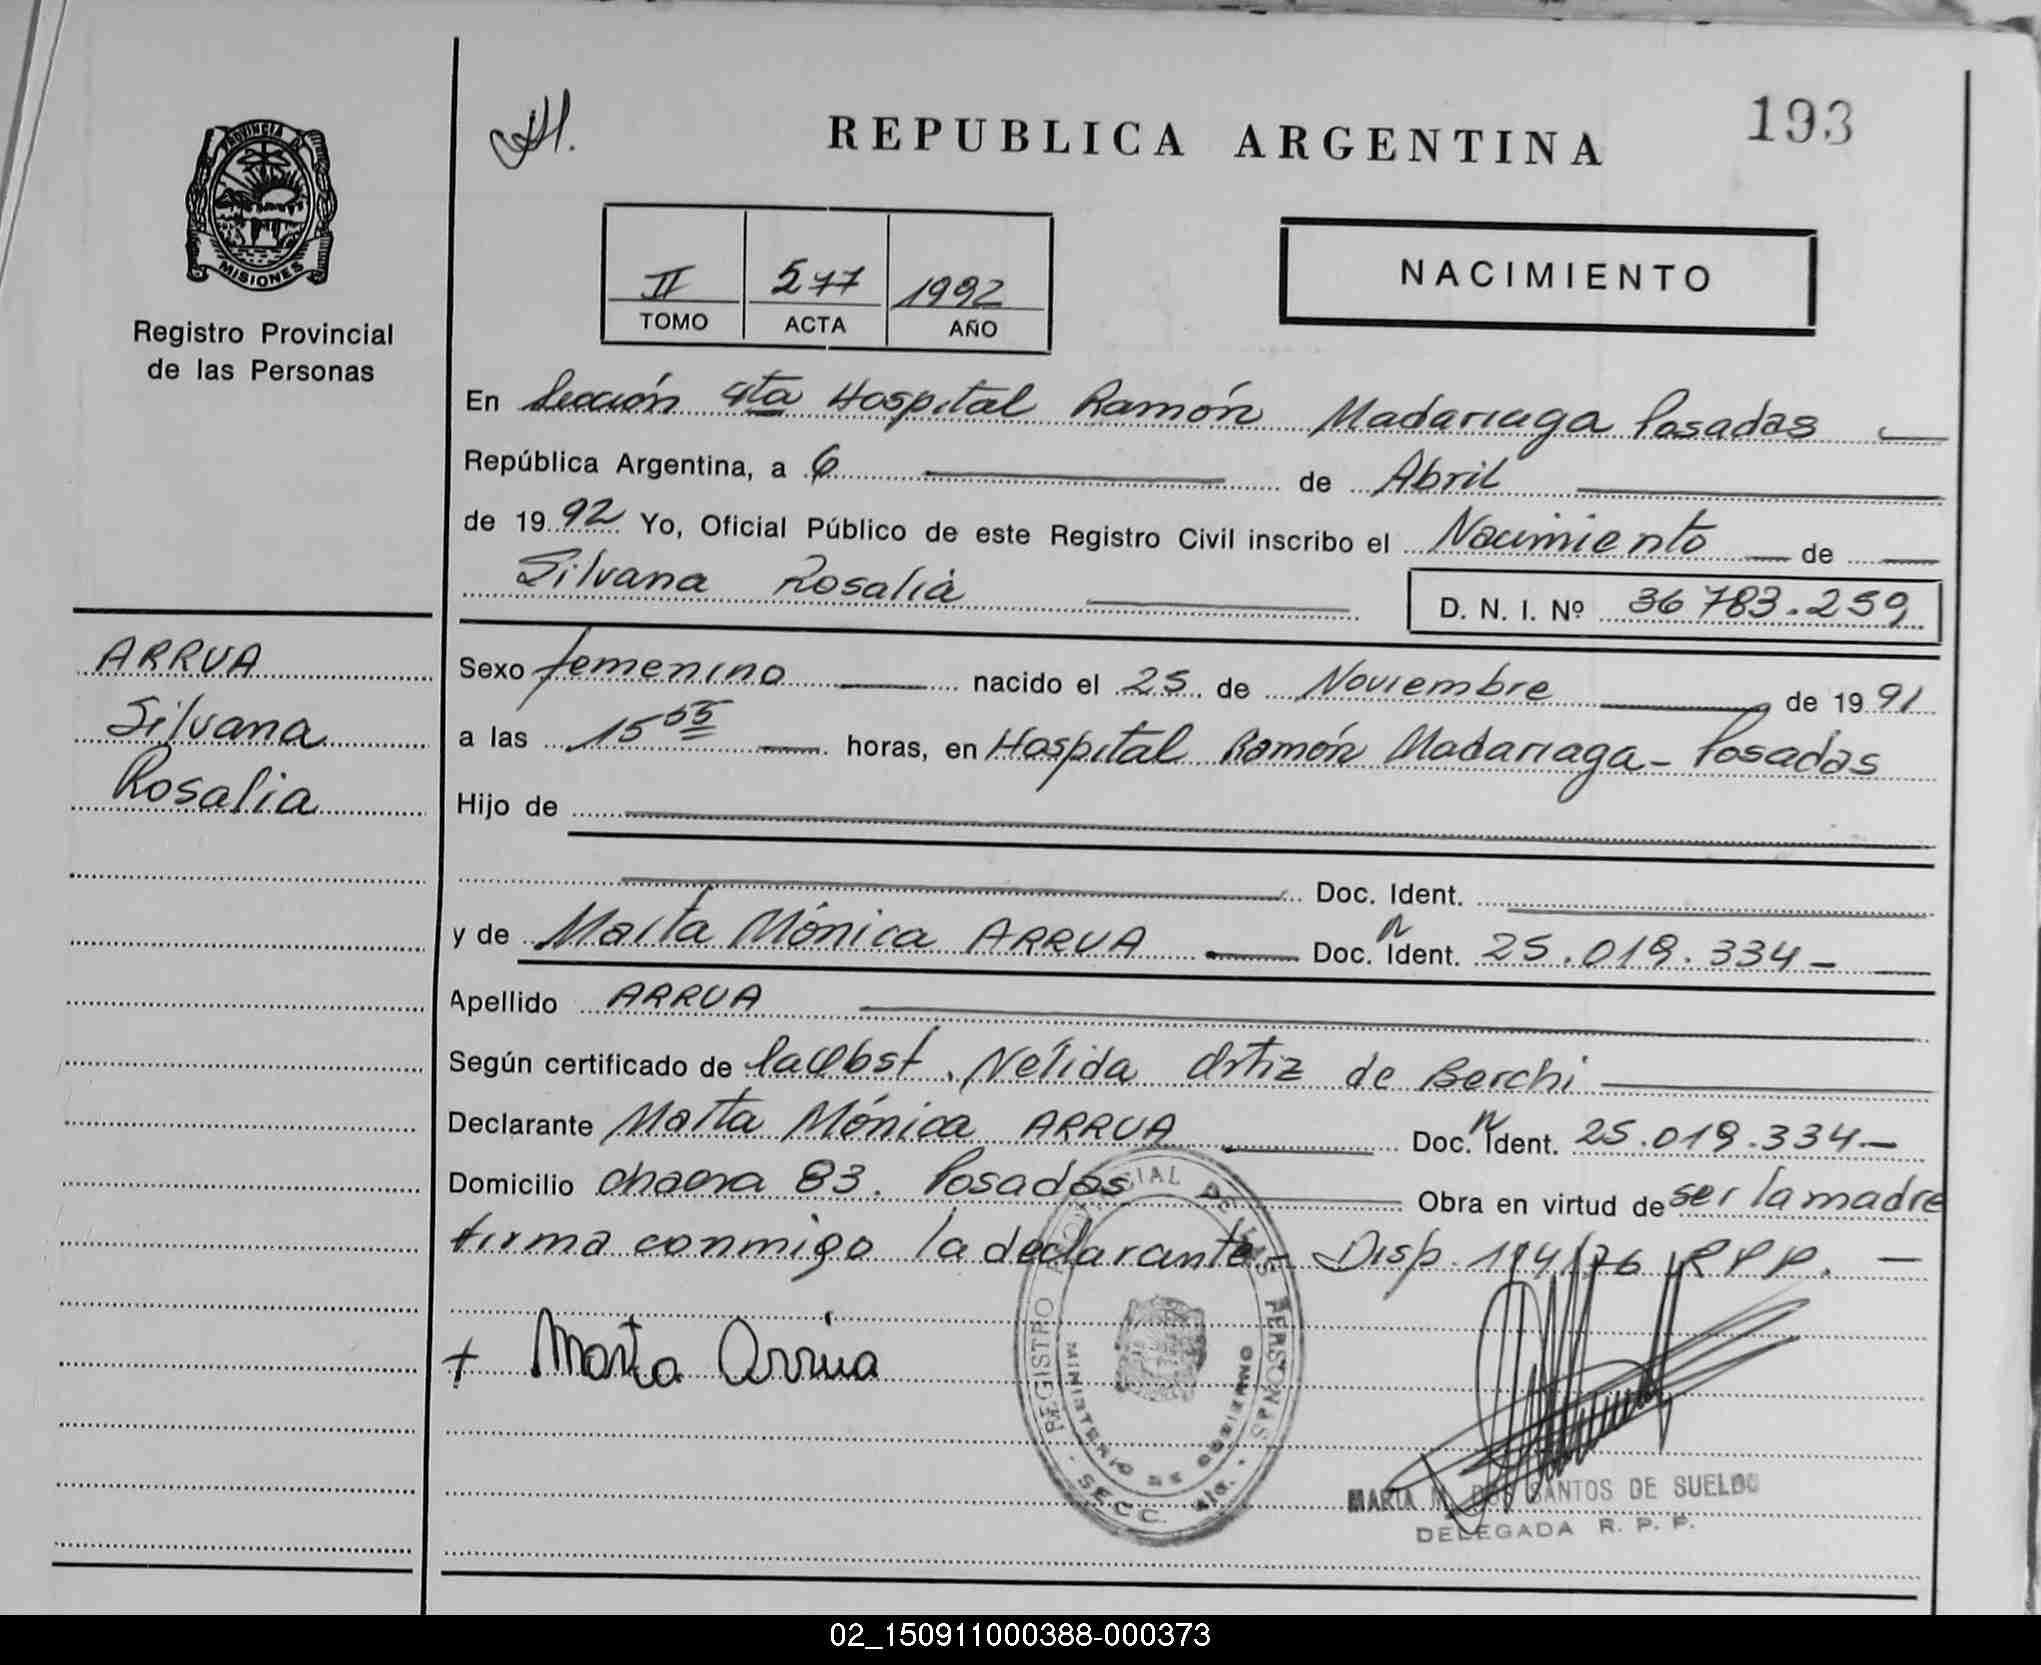 193
REPUBLICA ARGENTINA
PROVINCIA DE
MISIONES
Registro Provincial
de las Personas
II 577 1992
TOMO ACTA AÑO
NACIMIENTO
En Sección 4ta Hospital Ramón Madariaga Posadas
República Argentina, a 6 de Abril
de 1992 Yo, Oficial Público de este Registro Civil inscribo el Nacimiento de
Silvana Rosalia D. N. I. Nº 36783.259
ARRUA
Silvana
Rosalia
Sexo femenino nacido el 25 de Noviembre de 1991
a las 15 55 horas, en Hospital Ramón Madariaga - Posadas
Hijo de
Doc. Ident.
y de Marta Mónica ARRUA Doc. Ident. 25.019.334-
Apellido ARRUA
Según certificado de la Obst. Nélida Ortiz de Berchi
Declarante Marta Mónica ARRUA Doc. Ident. 25.019.334-
Domicilio chacra 83. Posadas Obra en virtud de ser la madre
firma conmigo la declarante - Disp. 114/76 RPP. -
+ Marta Arrua
REGISTRO PROVINCIAL DE LAS PERSONAS
MINISTERIO DE GOBIERNO
SECC. 4ta.
MARIA DOS SANTOS DE SUELDO
DELEGADA R. P. P.
02_150911000388-000373